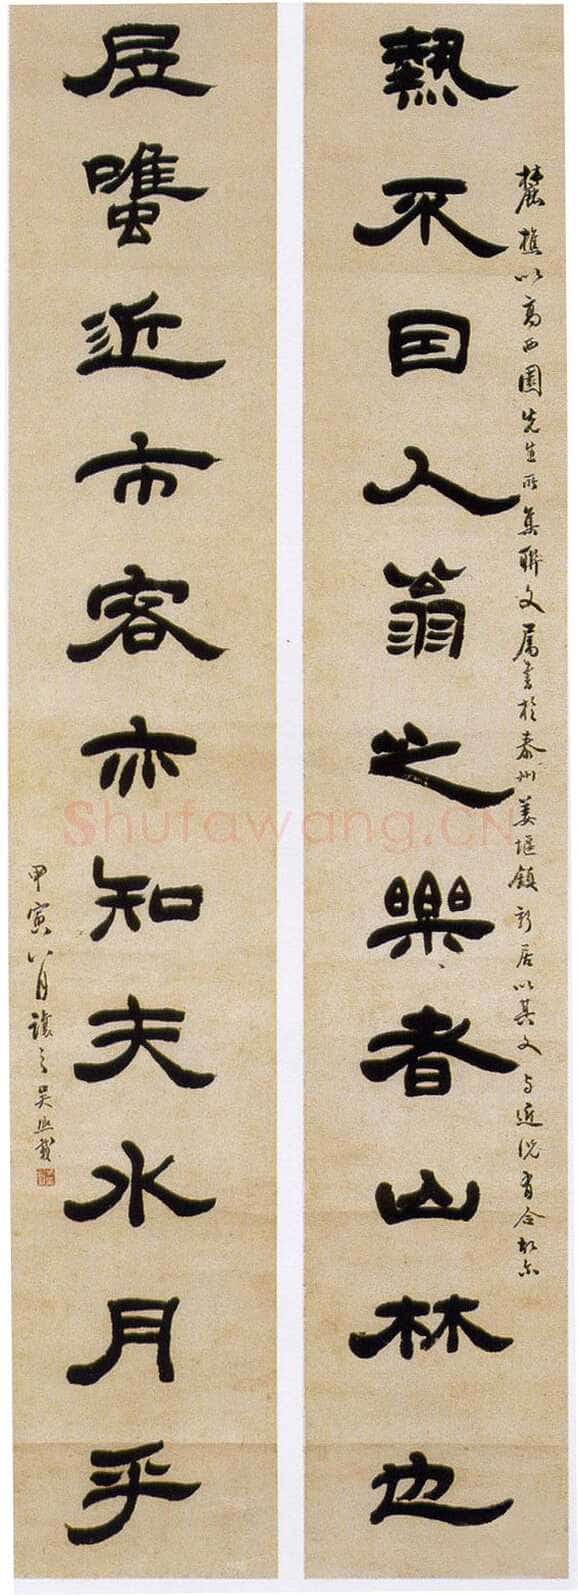 麓樵以高西園先生所集聯文屬書於泰州姜堰鎮新居以其文与近況有合故尔
熱不因人翁之樂者山林也
居雖近市客亦知夫水月乎
甲寅八月讓之吳熙載
Shufawang.CN